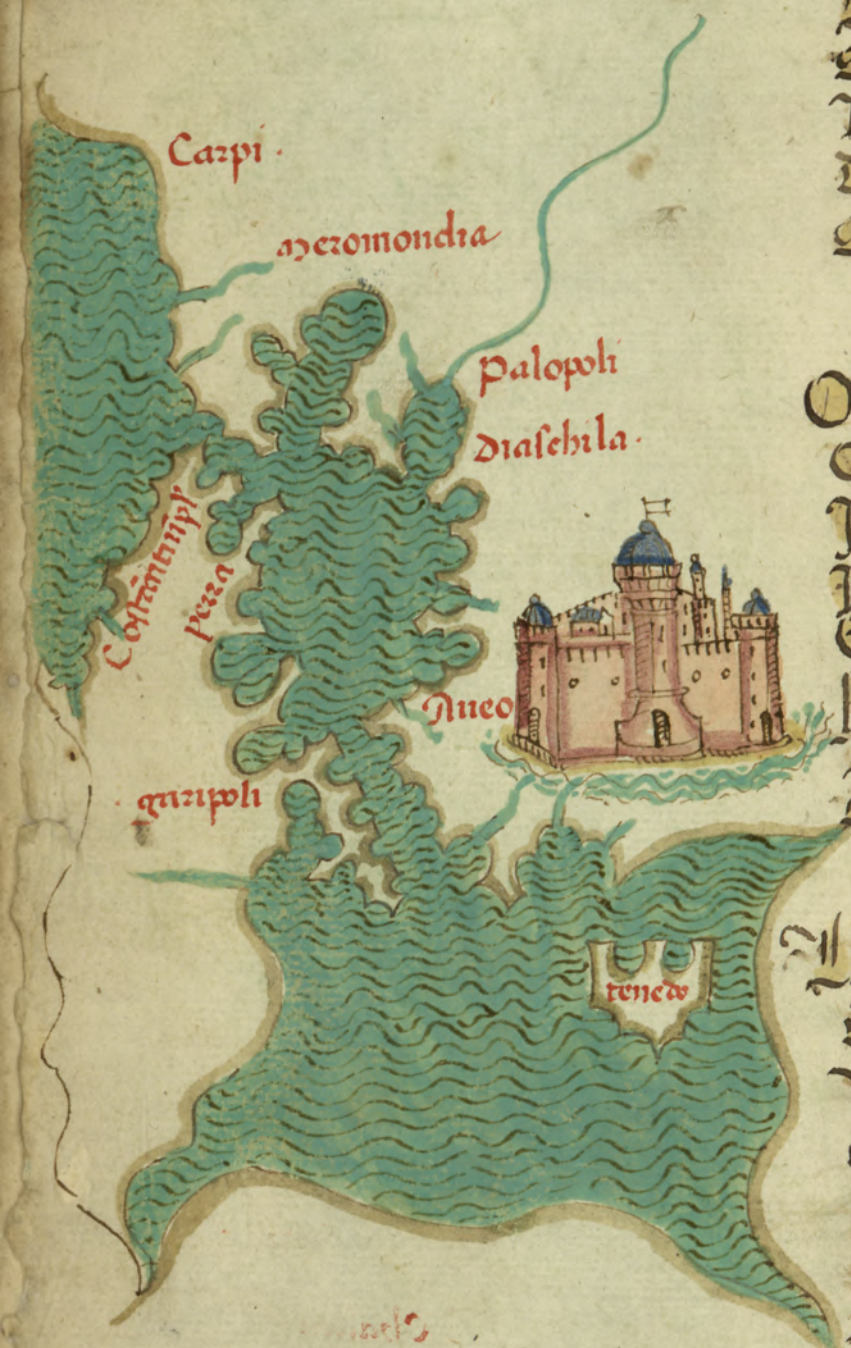 Carpi ·
Meromondia
Palopoli
Diaschila ·
perra
Aneo
garipoli
tenedo